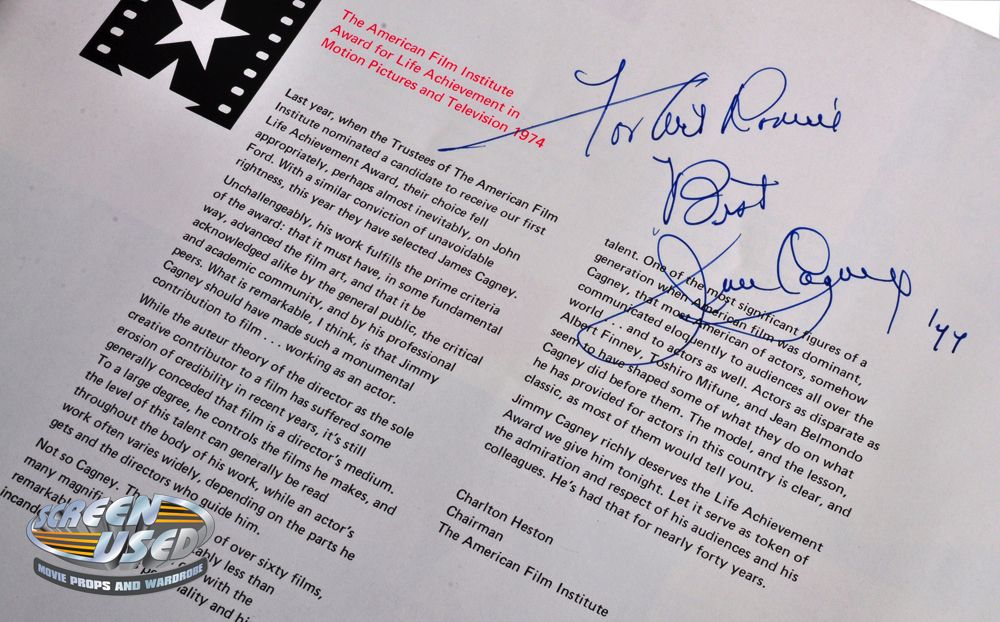 The American Film Institute
Award for Life Achievement in
Motion Pictures and Television 1974
Last year, when the Trustees of The American Film
Institute nominated a candidate to receive our first
Life Achievement Award, their choice fell
appropriately, perhaps almost inevitably, on John
Ford. With a similar conviction of unavoidable
rightness, this year they have selected James Cagney.
Unchallengeably, his work fulfills the prime criteria
of the award: that it must have, in some fundamental
way, advanced the film art, and that it be
acknowledged alike by the general public, the critical
and academic community, and by his professional
peers. What is remarkable, I think, is that Jimmy
Cagney should have made such a monumental
contribution to film . . . working as an actor.
While the auteur theory of the director as the sole
creative contributor to a film has suffered some
erosion of credibility in recent years, it's still
generally conceded that film is a director's medium.
To a large degree, he controls the films he makes, and
the level of this talent can generally be read
throughout the body of his work, while an actor's
work often varies widely, depending on the parts he
gets and the directors who guide him.
Not so Cagney. of over sixty films,
many less than
remarkable with the
For Art
Best
Jim Cagney '77
talent. One of the most significant figures of a
generation when American film was dominant,
Cagney, that most American of actors, somehow
communicated eloquently to audiences all over the
world . . . and to actors as well. Actors as disparate as
Albert Finney, Toshiro Mifune, and Jean Belmondo
seem to have shaped some of what they do on what
Cagney did before them. The model, and the lesson,
he has provided for actors in this country is clear, and
classic, as most of them would tell you.
Jimmy Cagney richly deserves the Life Achievement
Award we give him tonight. Let it serve as token of
the admiration and respect of his audiences and his
colleagues. He's had that for nearly forty years.
Charlton Heston
Chairman
The American Film Institute
SCREEN
USED
MOVIE PROPS AND WARDROBE